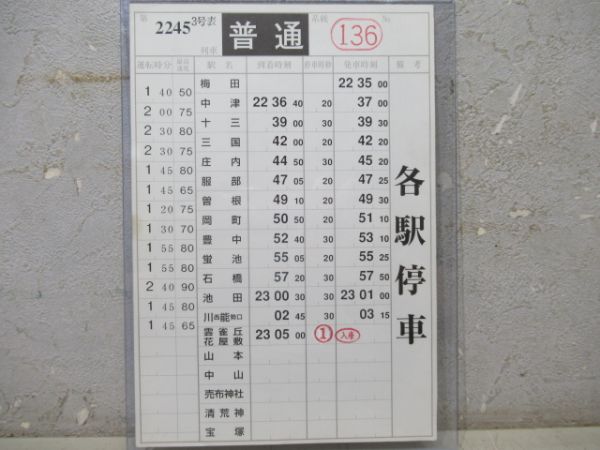 第 2245 3号表 列車 普通 系統 136 No
運転時分 最高速度 駅名 到着時刻 停車時秒 発車時刻 備考
梅田 22 35 00
1 40 50
中津 22 36 40 20 37 00
2 00 75
十三 39 00 30 39 30
2 30 80
三国 42 00 20 42 20
2 30 75
庄内 44 50 30 45 20
1 45 80
服部 47 05 20 47 25
1 45 65
曽根 49 10 20 49 30
1 20 75
岡町 50 50 20 51 10
1 30 70
豊中 52 40 30 53 10
1 55 80
蛍池 55 05 20 55 25
1 55 80
石橋 57 20 30 57 50
2 40 90
池田 23 00 30 30 23 01 00
1 45 80
川西能勢口 02 45 30 03 15
1 45 65
雲雀丘花屋敷 23 05 00 1 入庫
山本
中山
売布神社
清荒神
宝塚
各駅停車